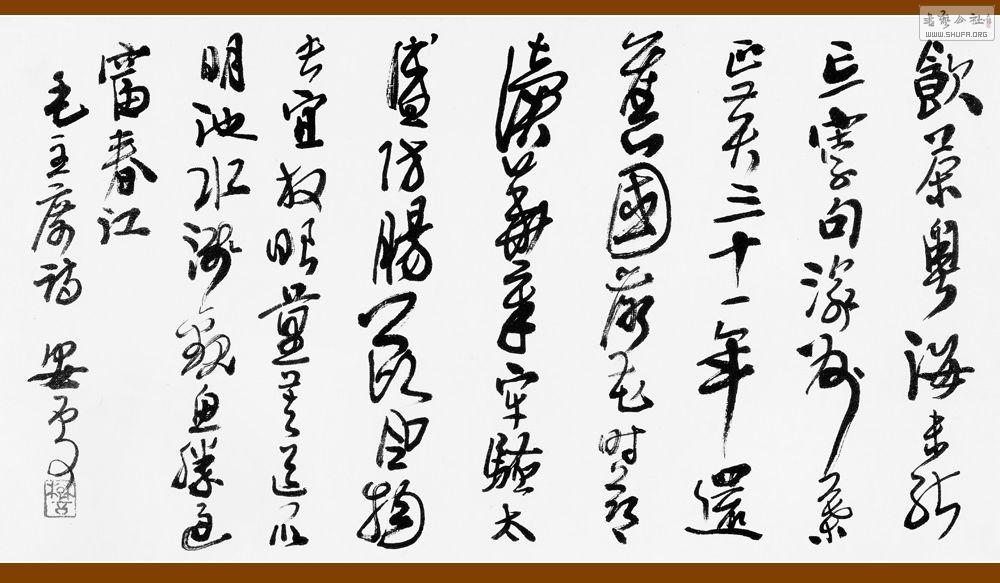 飲茶粵海未能
忘索句渝州葉
正黃三十一年還
舊國落花時節
讀華章牢騷太
盛防腸斷風物
長宜放眼量莫道昆
明池水淺觀魚勝過
富春江
毛主席詩
書藝公社
WWW.SHUFA.ORG